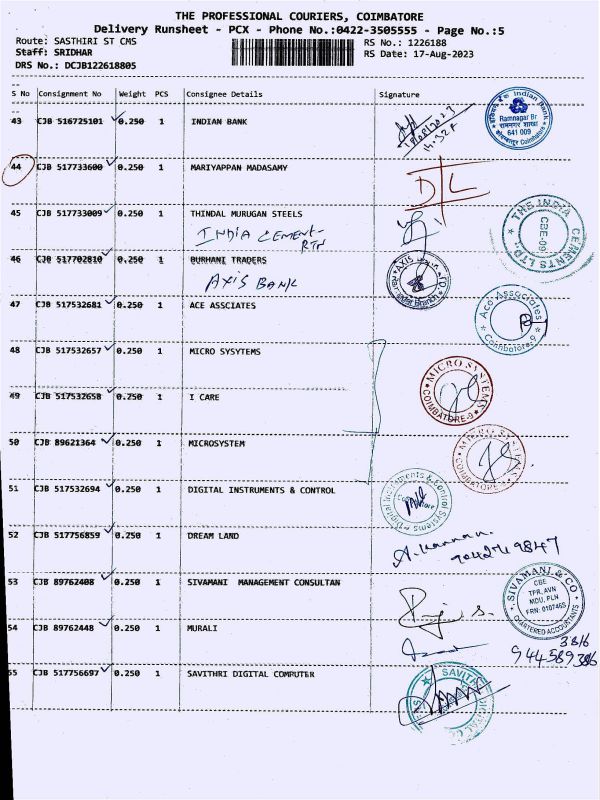 THE PROFESSIONAL COURIERS, COIMBATORE
Delivery Runsheet - PCX - Phone No.:0422-3505555 - Page No.:5
Route: SASTHIRI ST CMS RS No.: 1226188
Staff: SRIDHAR RS Date: 17-Aug-2023
DRS No.: DCJB122618805
S No Consignment No Weight PCS Consignee Details Signature
43 CJB 516725101 0.250 1 INDIAN BANK
Indian Bank
Ramnagar Br
641 009
44 CJB 517733600 0.250 1 MARIYAPPAN MADASAMY
D L
45 CJB 517733009 0.250 1 THINDAL MURUGAN STEELS
INDIA CEMENT-
RTN
THE INDIA CEMENTS LTD.
CBE-09
46 CJB 517702810 0.250 1 BURHANI TRADERS
AXIS BANK
47 CJB 517532681 0.250 1 ACE ASSCIATES
Ace Associates
Coimbatore-9
48 CJB 517532657 0.250 1 MICRO SYSYTEMS
MICRO SYSTEMS
COIMBATORE-9
49 CJB 517532658 0.250 1 I CARE
50 CJB 89621364 0.250 1 MICROSYSTEM
51 CJB 517532694 0.250 1 DIGITAL INSTRUMENTS & CONTROL
Digital Instruments & Control Systems
52 CJB 517756859 0.250 1 DREAM LAND
53 CJB 89762408 0.250 1 SIVAMANI MANAGEMENT CONSULTAN
SIVAMANI & CO
CBE
TPR, AVN
MDU, PLN
FRN: 010746S
CHARTERED ACCOUNTANTS
54 CJB 89762448 0.250 1 MURALI
55 CJB 517756697 0.250 1 SAVITHRI DIGITAL COMPUTER